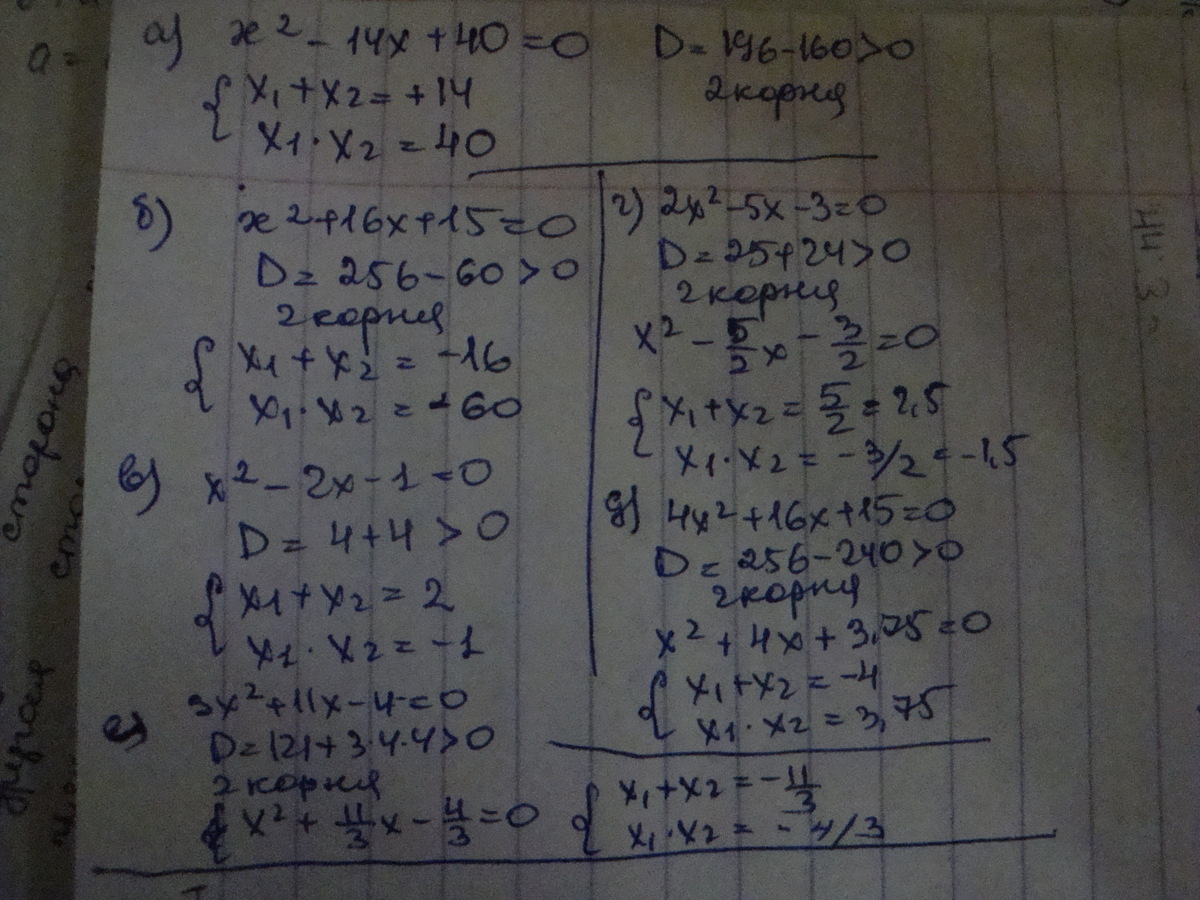 а) x² - 14x + 40 = 0
D = 196 - 160 > 0
2 корня
{ x₁ + x₂ = +14
x₁ · x₂ = 40
б) x² + 16x + 15 = 0
D = 256 - 60 > 0
2 корня
{ x₁ + x₂ = -16
x₁ · x₂ = -60
в) x² - 2x - 1 = 0
D = 4 + 4 > 0
{ x₁ + x₂ = 2
x₁ · x₂ = -1
г) 2x² - 5x - 3 = 0
D = 25 + 24 > 0
2 корня
x² - 5/2 x - 3/2 = 0
{ x₁ + x₂ = 5/2 = 2,5
x₁ · x₂ = -3/2 = -1,5
д) 4x² + 16x + 15 = 0
D = 256 - 240 > 0
2 корня
x² + 4x + 3,75 = 0
{ x₁ + x₂ = -4
x₁ · x₂ = 3,75
е) 3x² + 11x - 4 = 0
D = 121 + 3·4·4 > 0
2 корня
x² + 11/3 x - 4/3 = 0
{ x₁ + x₂ = -11/3
x₁ · x₂ = -4/3
а =
сторона
другая